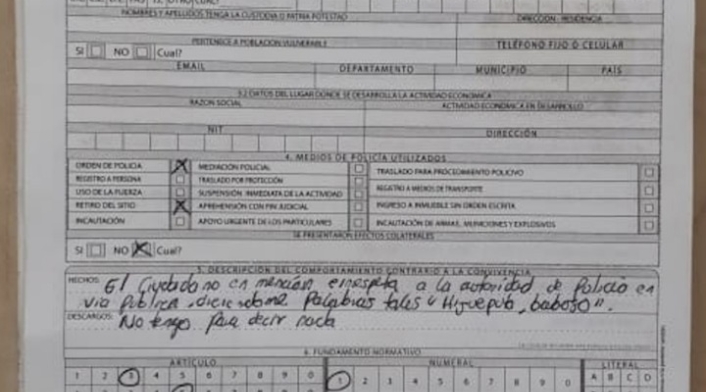 NOMBRES Y APELLIDOS TENGA LA CUSTODIA O PATRIA POTESTAD
DIRECCION - RESIDENCIA
PERTENECE A POBLACION VULNERABLE
TELÉFONO FIJO O CELULAR
SI NO Cual?
EMAIL DEPARTAMENTO MUNICIPIO PAIS
3.2 DATOS DEL LUGAR DONDE SE DESARROLLA LA ACTIVIDAD ECONOMICA
RAZON SOCIAL ACTIVIDAD ECONOMICA EN DESARROLLO
NIT DIRECCIÓN
4. MEDIOS DE POLICÍA UTILIZADOS
ORDEN DE POLICIA X MEDIACIÓN POLICIAL TRASLADO PARA PROCEDIMIENTO POLICIVO
REGISTRO A PERSONA TRASLADO POR PROTECCIÓN REGISTRO A MEDIOS DE TRANSPORTE
USO DE LA FUERZA SUSPENSIÓN INMEDIATA DE LA ACTIVIDAD
RETIRO DEL SITIO X APREHENSIÓN CON FIN JUDICIAL INGRESO A INMUEBLE SIN ORDEN ESCRITA
INCAUTACIÓN APOYO URGENTE DE LOS PARTICULARES INCAUTACIÓN DE ARMAS, MUNICIONES Y EXPLOSIVOS
SE PRESENTARON EFECTOS COLATERALES
SI NO X Cual?
5. DESCRIPCIÓN DEL COMPORTAMIENTO CONTRARIO A LA CONVIVENCIA
HECHOS: El Ciudadano en mención e irrespeta a la autoridad de Policia en
via Publica, diciendome Palabras tales "Hijueputa, baboso".
DESCARGOS: No tengo para decir nada
6. FUNDAMENTO NORMATIVO
ARTÍCULO NUMERAL LITERAL
1 2 3 4 5 6 7 8 9 0 1 2 3 4 5 6 7 8 9 0 A B C D